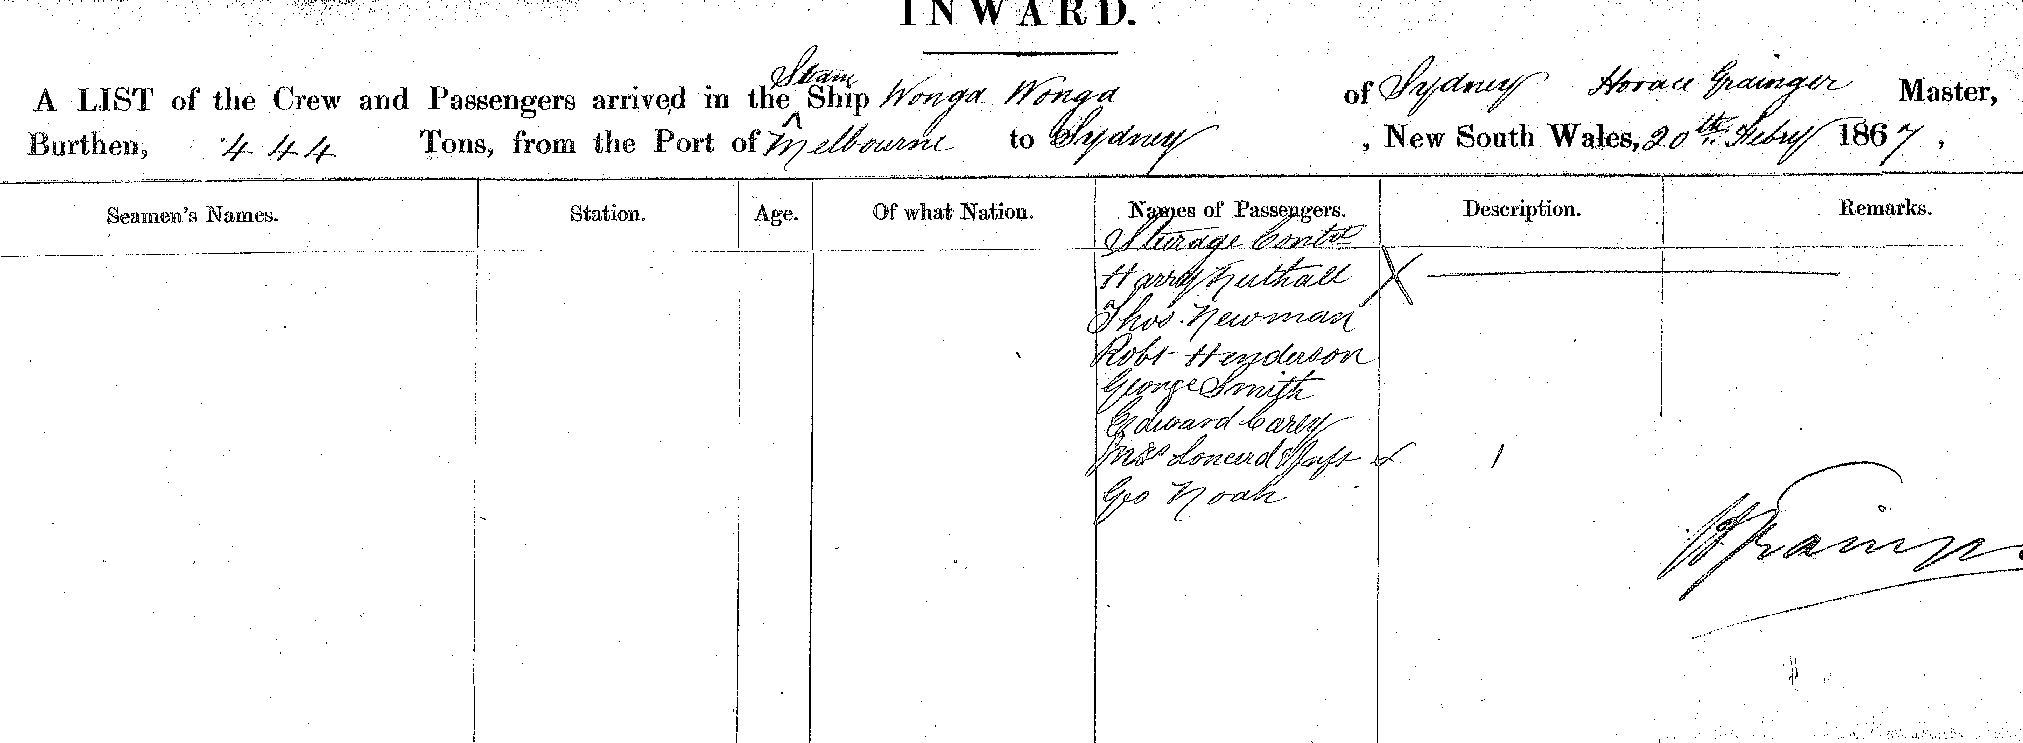 INWARD.
Steam
A LIST of the Crew and Passengers arrived in the Ship Wonga Wonga of Sydney Horace Grainger Master,
Burthen, 444 Tons, from the Port of Melbourne to Sydney, New South Wales, 20th Febry 1867,
Seamen's Names. Station. Age. Of what Nation. Names of Passengers. Description. Remarks.
Steerage Contd
Harry Nuthall X
Thos. Newman
Robt Henderson
George Smith
Edward Carey
Mrs
Geo Noah
H Grainger